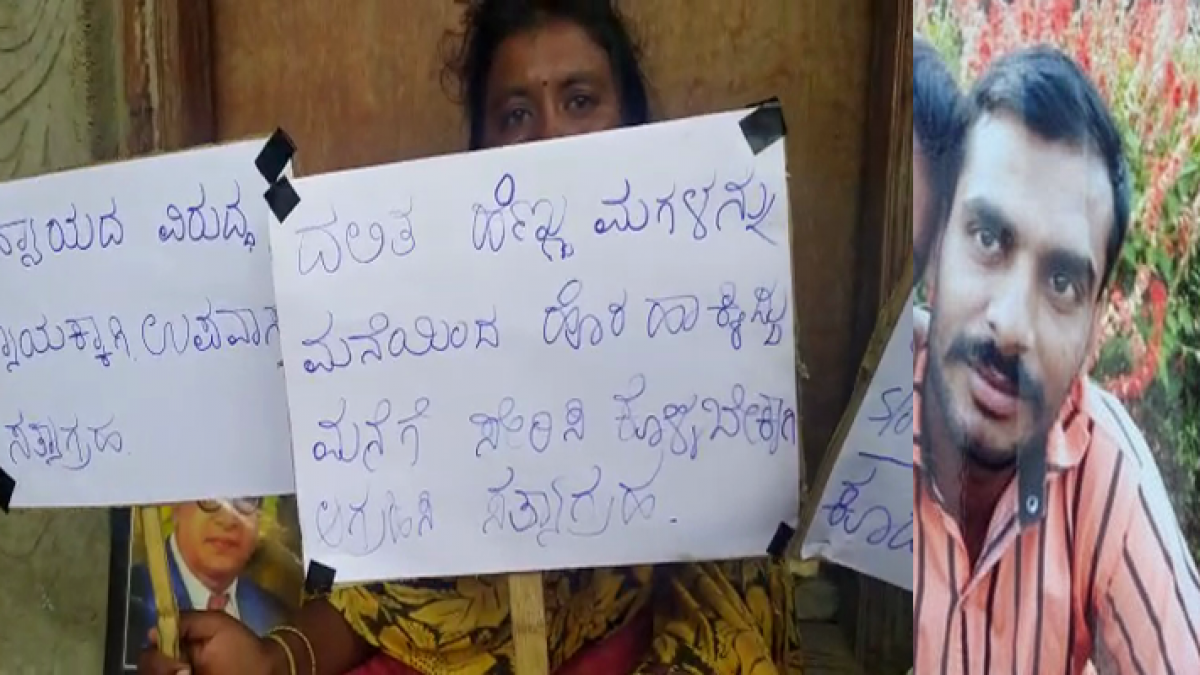 ವಿರುದ್ಧ
ಉಪವಾಸ
ಸತ್ಯಾಗ್ರಹ.
ದಲಿತ ಹೆಣ್ಣು ಮಗಳನ್ನು
ಮನೆಯಿಂದ ಹೊರ ಹಾಕಿದ್ದು
ಮನೆಗೆ ಸೇರಿಸಿ ಕೊಳ್ಳಬೇಕಾಗಿ
ಆಗ್ರಹಿಸಿ ಸತ್ಯಾಗ್ರಹ.